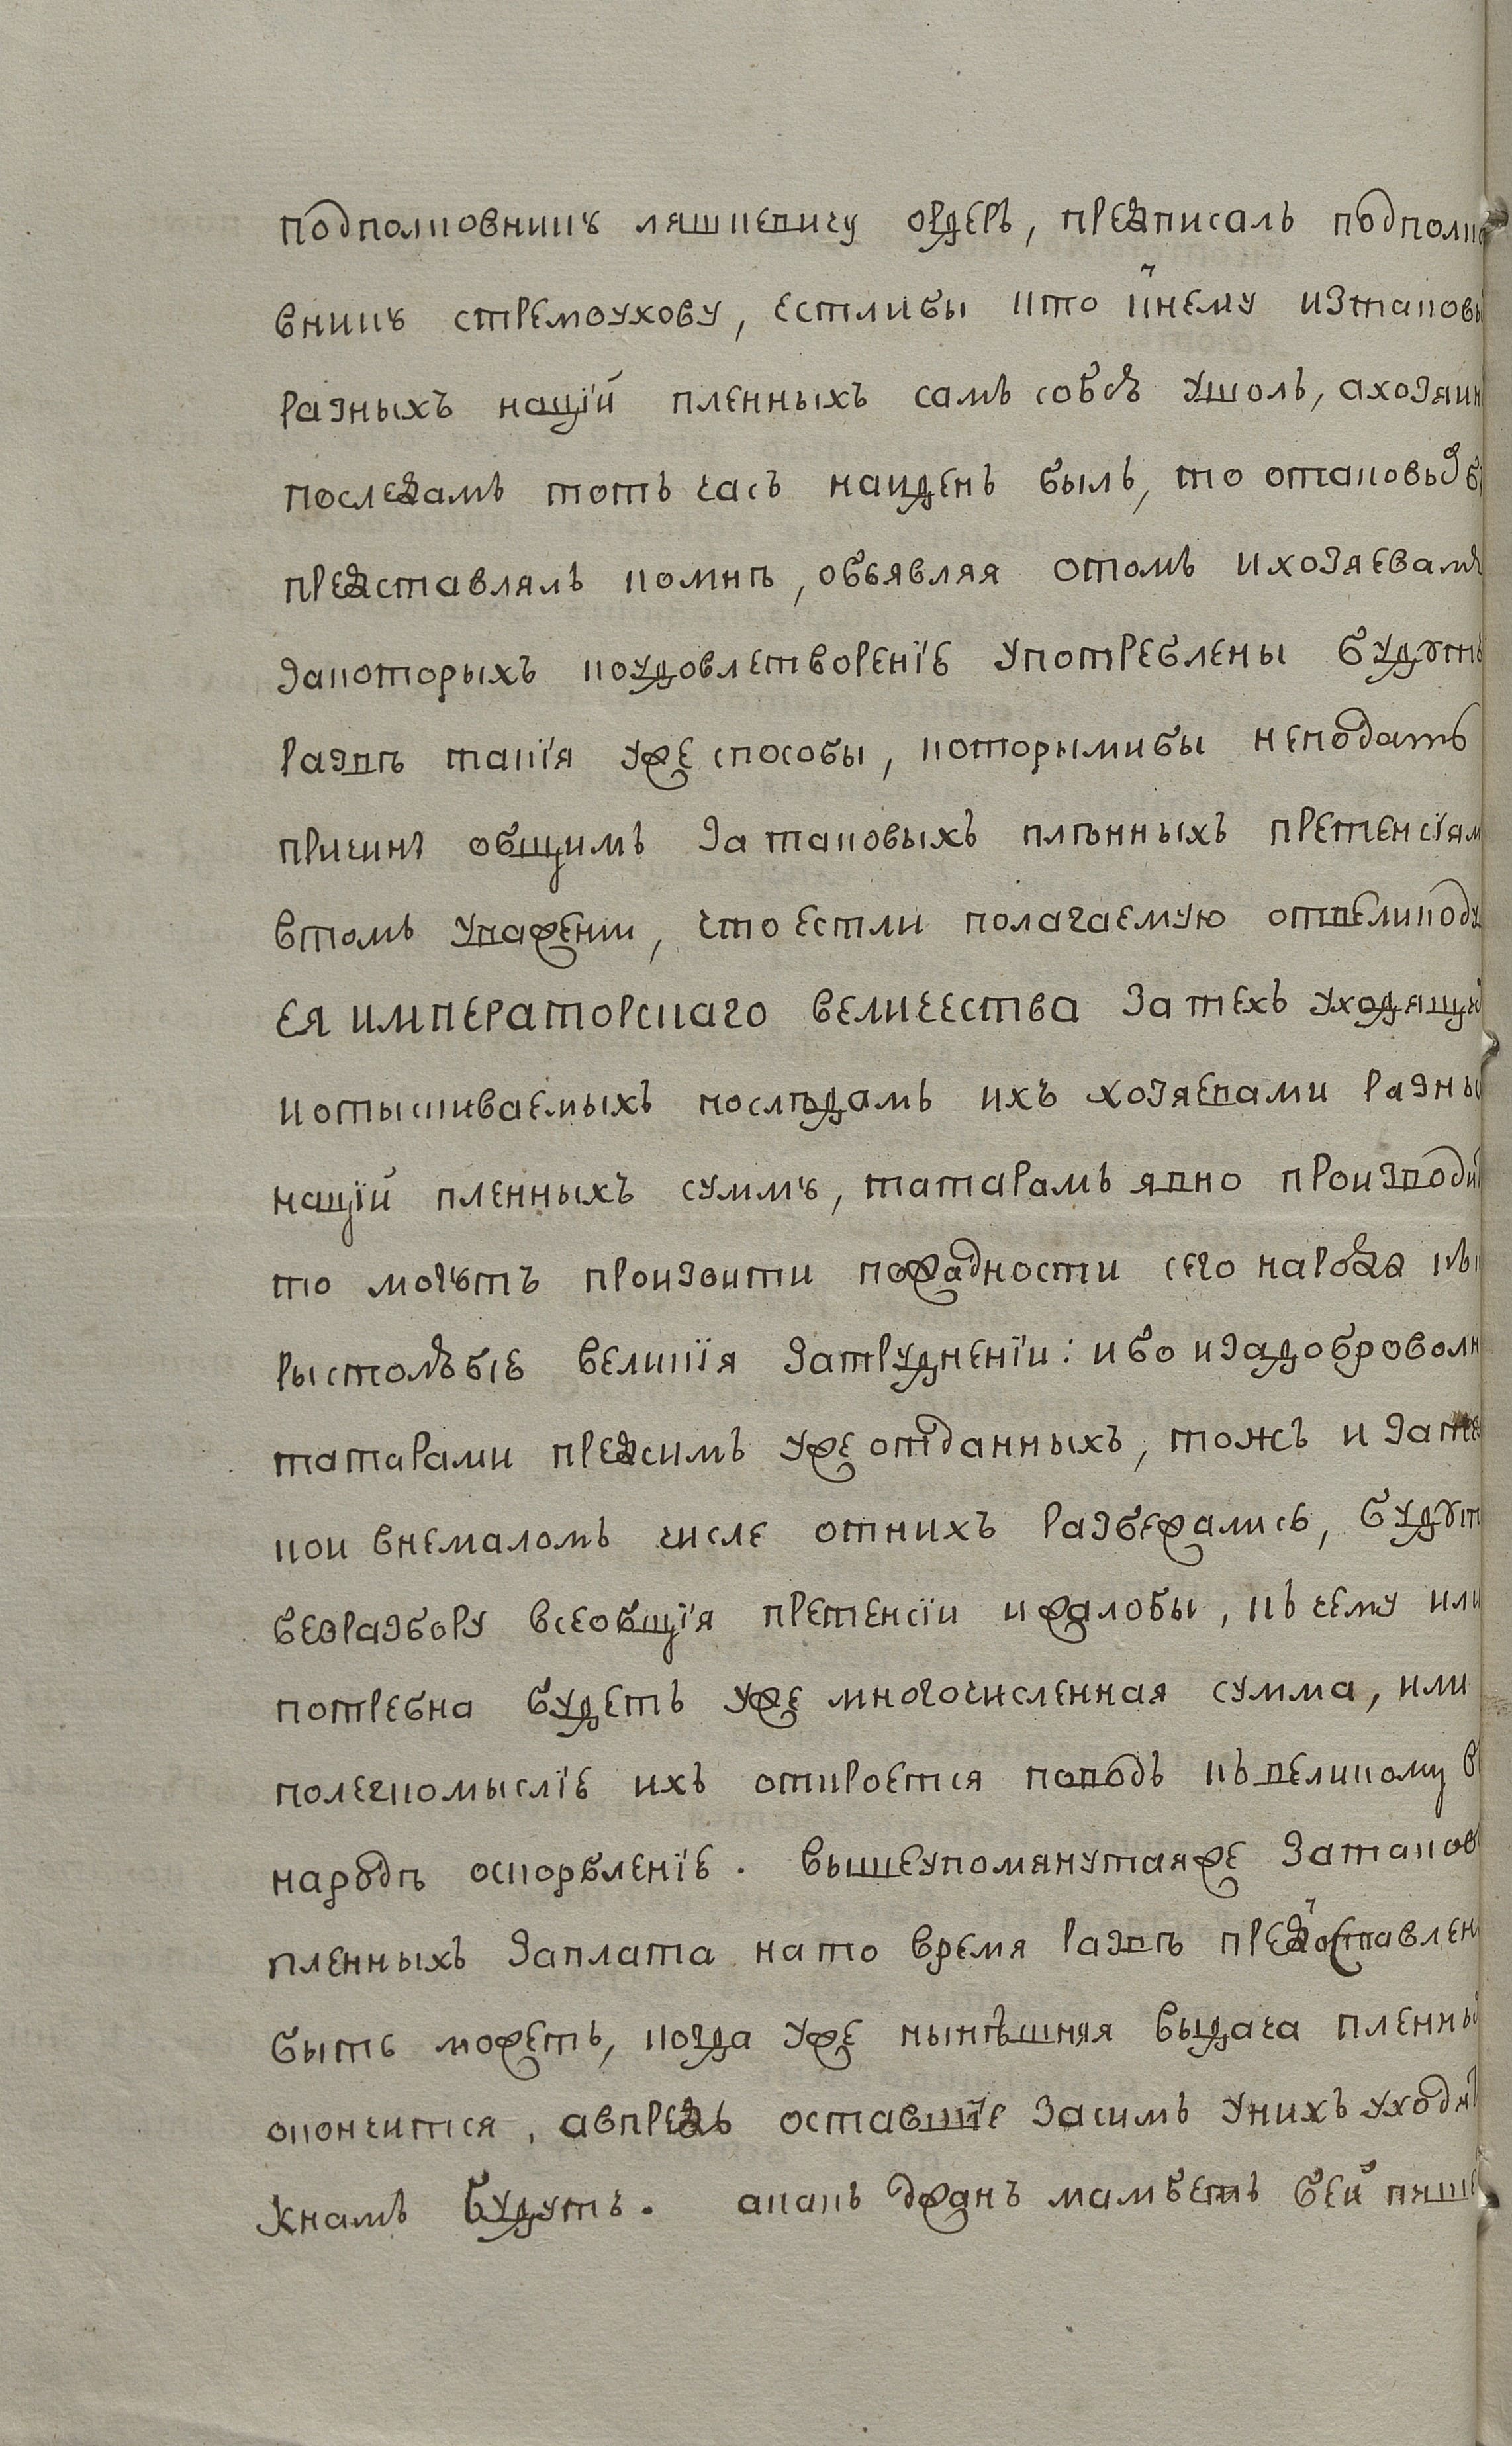 подполковнику ляшкевичу ордеръ, предписалъ подполко
внику стремоухову, естлибы кто кнему изтаковы
разныхъ націй пленныхъ самъ собою ушолъ, ахозяин
последамъ тотъ часъ наиденъ былъ, то отаковыхъ
представлялъ комнѣ, объявляя отомъ ихозяевамъ
закоторыхъ коудовлетворенію употреблены будутъ
развѣ такія уже способы, которымибы неподать
причинъ общимъ затаковыхъ плѣнныхъ претенсіям
втомъ уважении, что естли полагаемую отвеликоду
ея императорскаго величества затехъ уходящих
иотыскиваемыхъ послѣдамъ ихъ хозяевами разны
націй пленныхъ сумму, татарамъ явно производи
то могутъ произоити пожадности сего народа къ ко
рыстолюбію великія затрудненіи: ибо изадоброволн
татарами предсимъ уже отданныхъ, тожъ и зате
кои внемаломъ числе отнихъ разбежались, будут
безразбору всеобщія претенсіи ижалобы, къ чему или
потребна будетъ уже многочисленная сумма, или
полегкомыслію ихъ откроется поводъ къ великому в
народѣ оскорбленію. вышеупомянутаяже затаков
пленныхъ заплата нато время развѣ предоставлен
быть можетъ, когда уже нынѣшняя выдача пленны
окончится, авпредь оставшіе засимъ унихъ уходят
кнамъ будутъ. акакъ джанъ мамбетъ бей пише